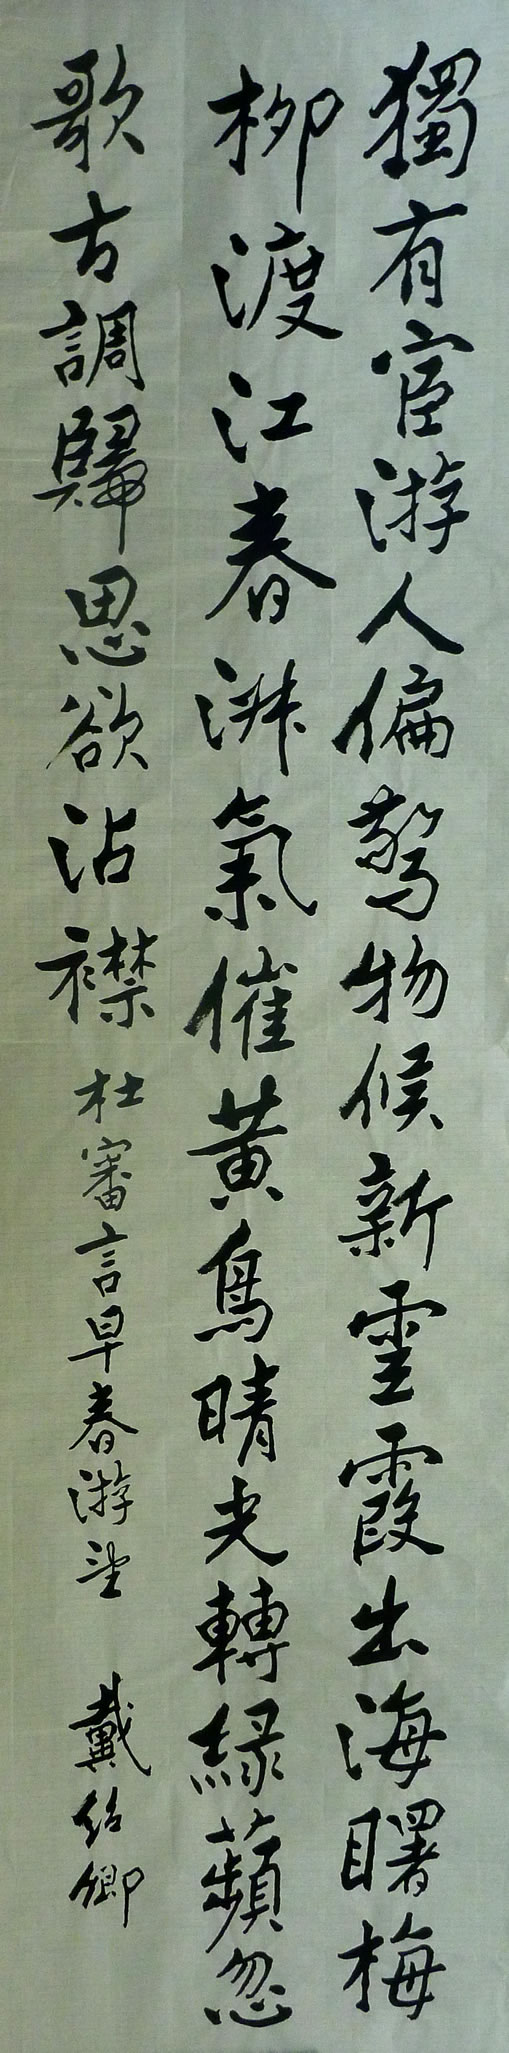 獨有宦游人偏驚物候新雲霞出海曙梅
柳渡江春淑氣催黃鳥晴光轉緑蘋忽
歌古調歸思欲沾襟 杜審言早春游望 戴紹卿